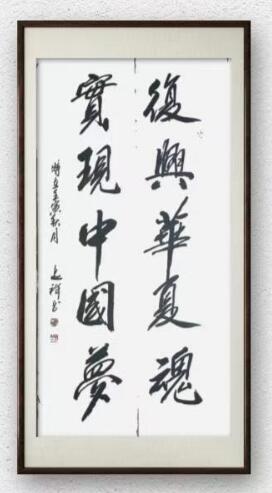 復興華夏魂
實現中國夢
時在壬寅秋月